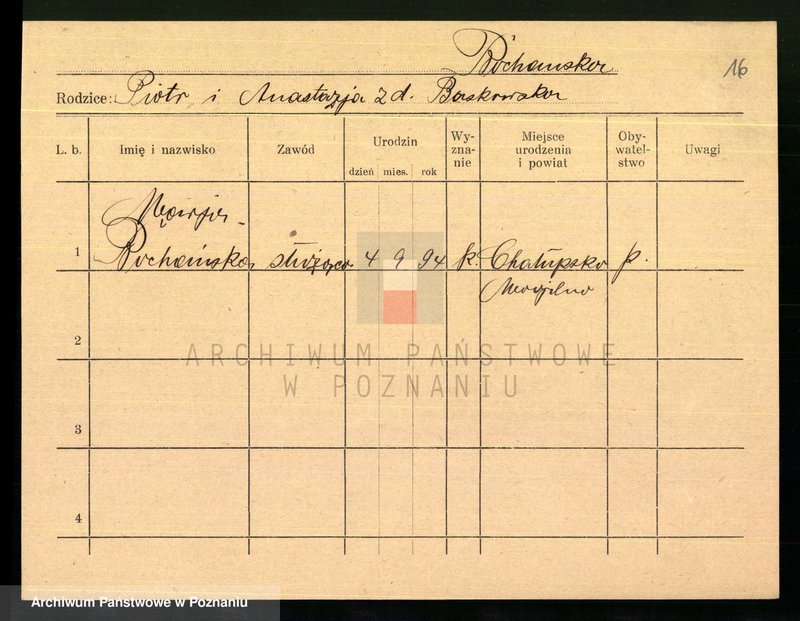 Bochańska
16
Rodzice: Piotr i Anastazja z d. Baskowska
L. b. Imię i nazwisko Zawód Urodzin Wy-zna-nie Miejsce urodzenia i powiat Oby-watel-stwo Uwagi
dzień mies. rok
Marja
1 Bochańska służąca 4 9 94 k. Chałupska p.
Mogilno
2
ARCHIWUM PAŃSTWOWE
W POZNANIU
3
4
Archiwum Państwowe w Poznaniu